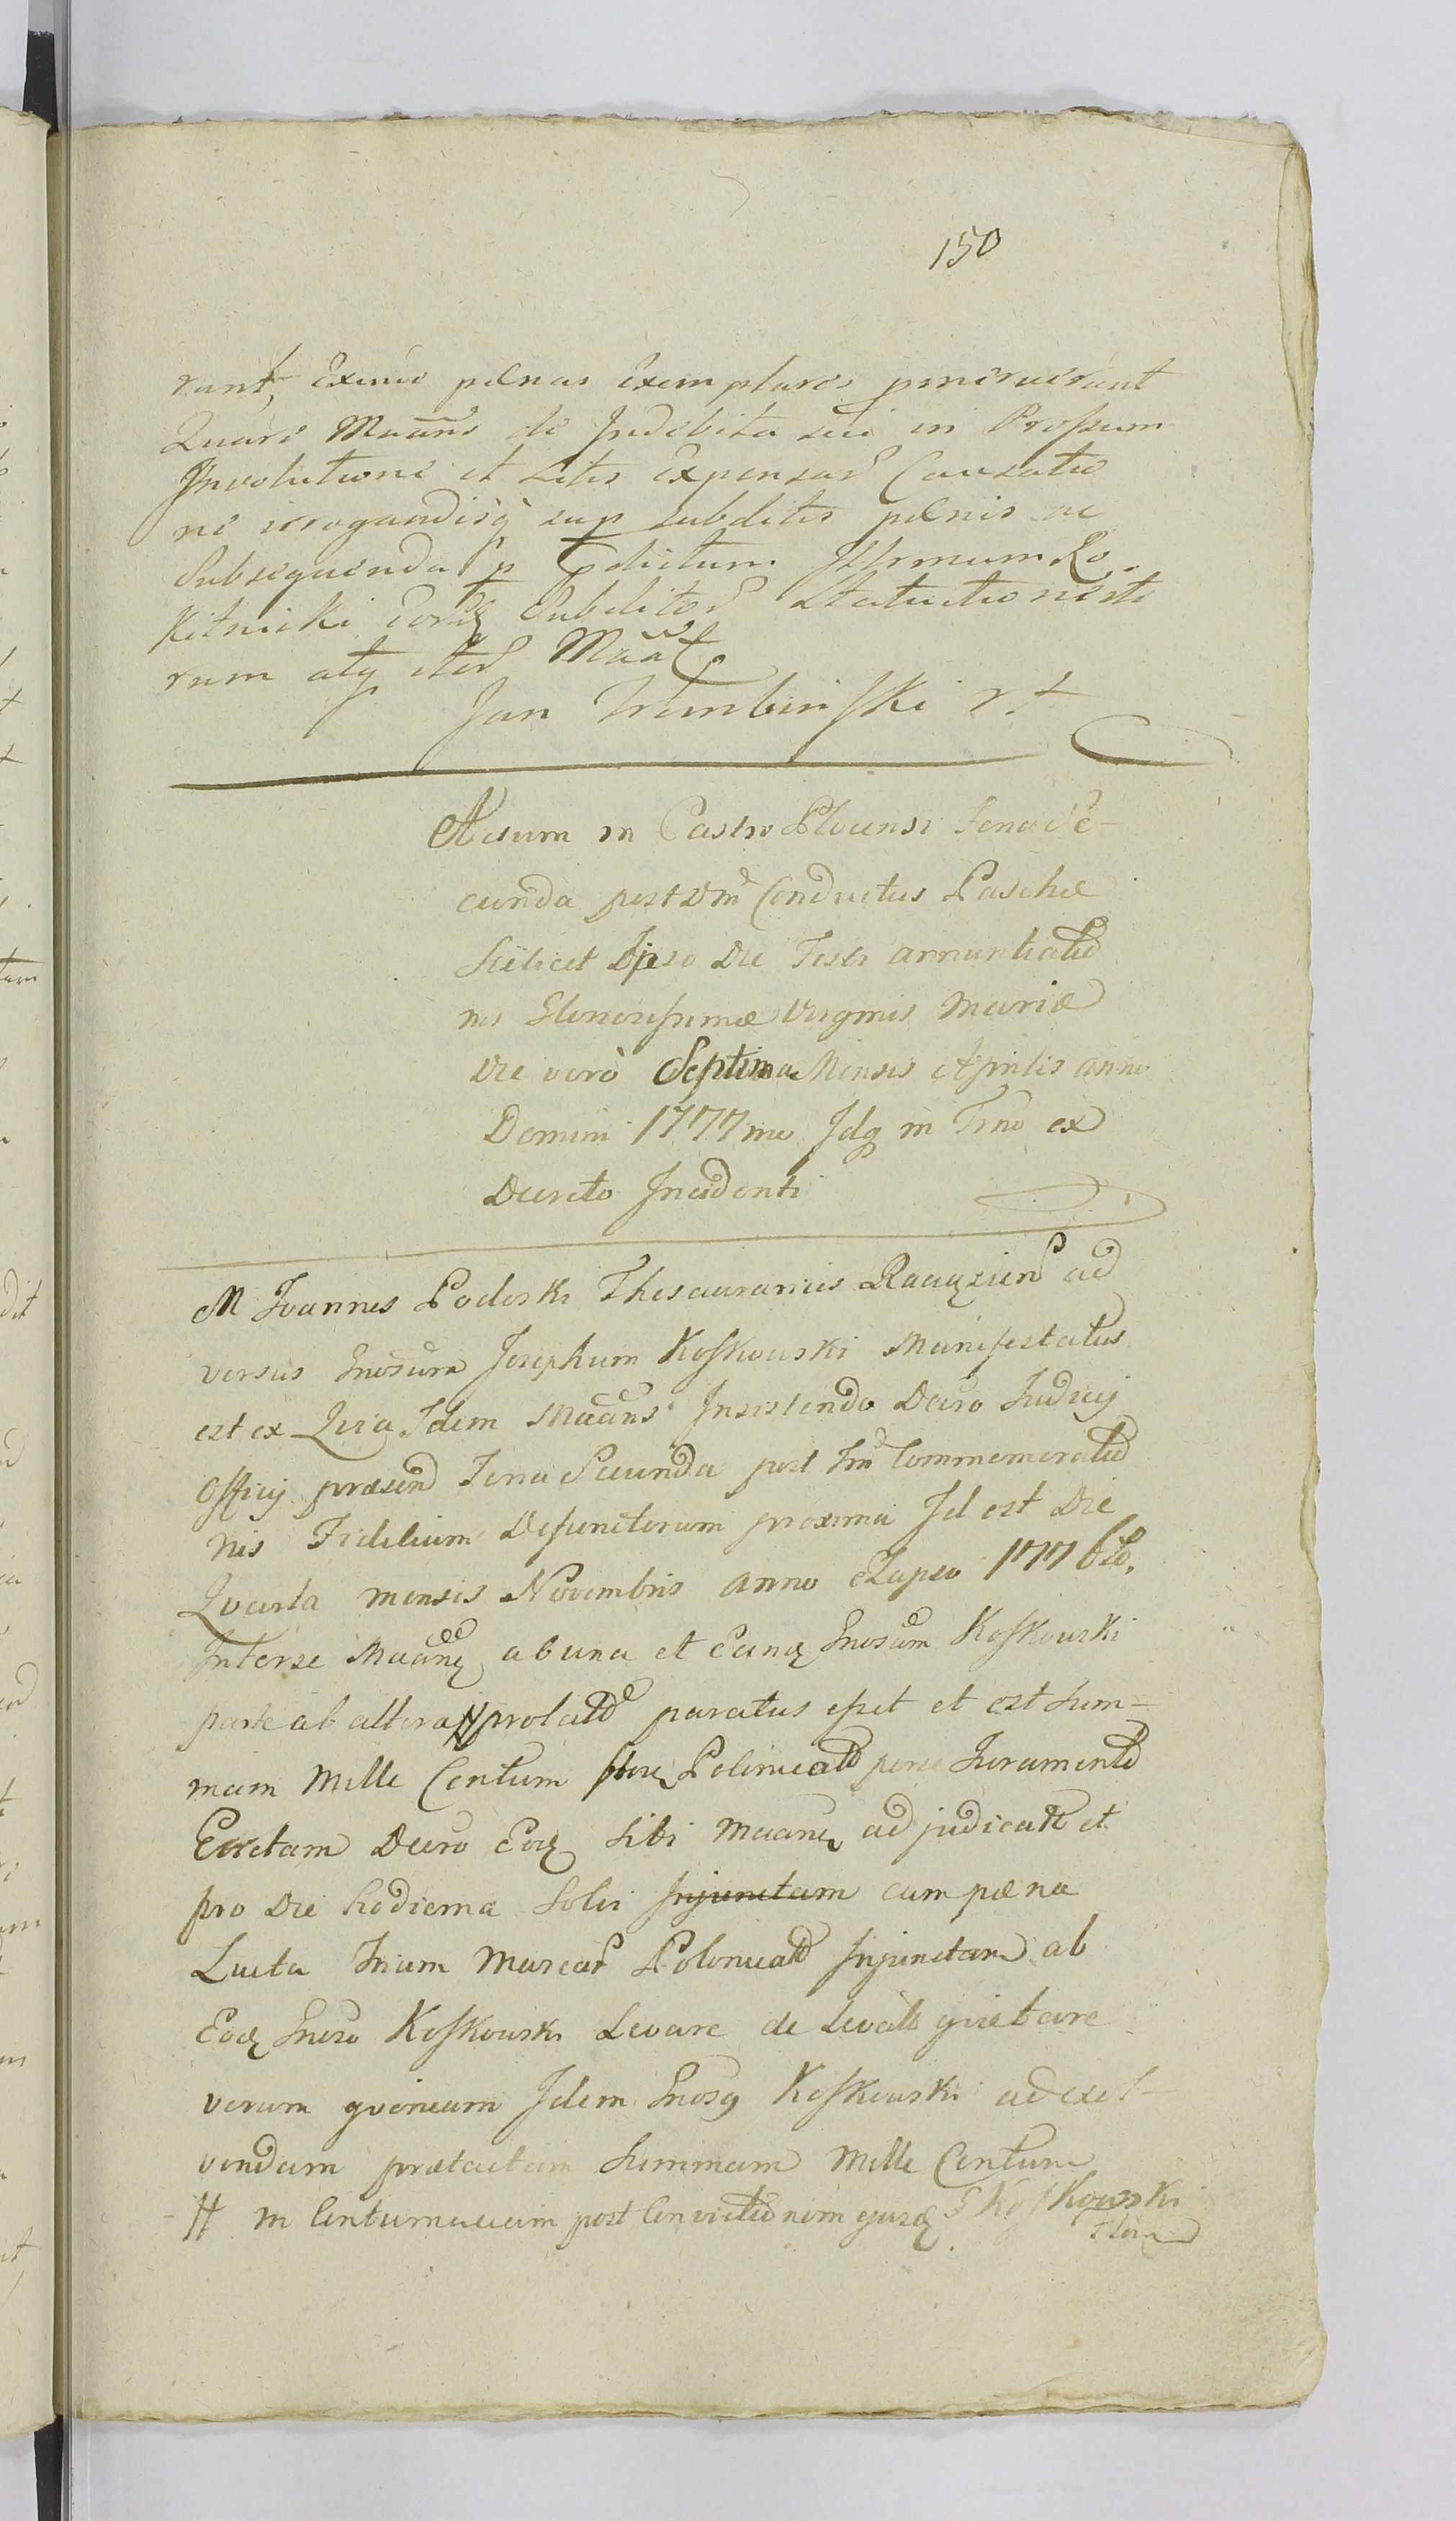 150
runt, Exinde pænas Exemplares pmeruerunt
Quare Maans de Indebita sui in Prossum
Involutione et Litis Expensar Causatio
ne irrogandisq sup subditis pænis ac
Subsequenda p Gdictum Illrmum Ro
kitnicki eorq Subditor Statuitione ite
rum atq iter Maat
Jan Trembinski
Actum in Castro Plocensi Feria Se
cunda post Dm Conductus Paschæ
scilicet Ipso Die Festi Annuntiatio
nis Gloriosissimæ Virginis Mariæ
Die verò Septima Mensis Aprilis anno
Domini 1777mo Idq in Trno ex
Decreto Incidenti
M Joannes Podoski Thesaurarius Raciązien ad
versus Gnosum Josephum Koskowski Manifestatus
est ex Quia Idem Maans Insistendo Decro Judicij
Officij præsen Feria Secunda post Fm Commemoratio
nis Fidelium Defunctorum proxima Id est Die
Quarta mensis Novembris anno Elapso 1776to
Interse Maanq ab una et Eunq Gnosum Koskowski
parte ab altera # prolato paratus esset et est Sum-
mam Mille Centum flore Polonical per Juramento
Evictam Decro Eoq sibi Maanq adjudicat et
pro Die hodierna Solvi Injunctam cum pæna
Lucta Trium Marcar Polonical Injunctam ab
Eoq Gnoso Koskowski Levare de Levatis quietare
verum quoniam Idem Gnosq Koskowski ad exol-
vendam prætactam Summam Mille Centum
# in Contumaciam post Convictionem ejusq G Koskowski
Flor